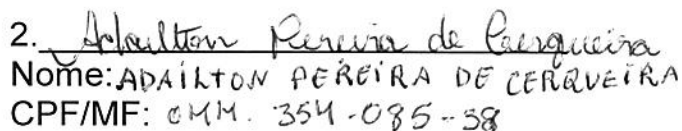 2. Adailton Pereira de Cerqueira
Nome: ADAILTON PEREIRA DE CERQUEIRA
CPF/MF: 044. 354-085-58